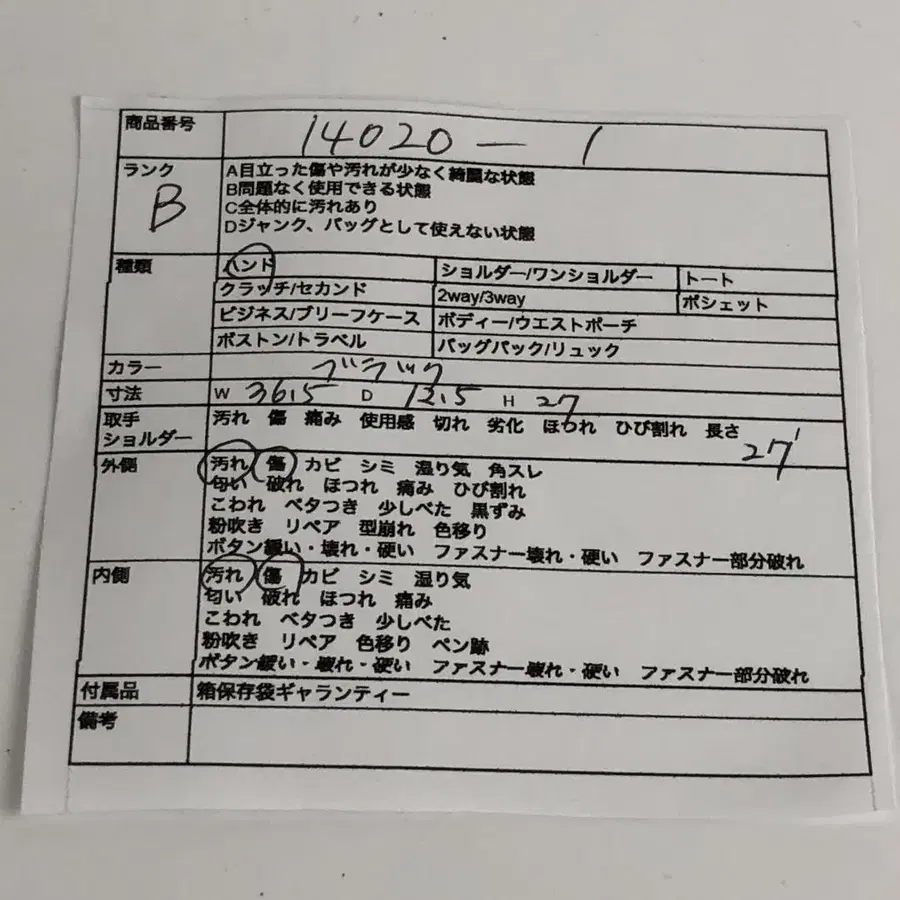 商品番号 14020-1
ランク B
A目立った傷や汚れが少なく綺麗な状態
B問題なく使用できる状態
C全体的に汚れあり
Dジャンク、バッグとして使えない状態
種類 ハンド ショルダー/ワンショルダー トート
クラッチ/セカンド 2way/3way ポシェット
ビジネス/ブリーフケース ボディー/ウエストポーチ
ボストン/トラベル バッグパック/リュック
カラー ブラック
寸法 W 36.5 D 12.5 H 27
取手 汚れ 傷 痛み 使用感 切れ 劣化 ほつれ ひび割れ 長さ
ショルダー 27
外側 汚れ 傷 カビ シミ 湿り気 角スレ
匂い 破れ ほつれ 痛み ひび割れ
こわれ ベタつき 少しべた 黒ずみ
粉吹き リペア 型崩れ 色移り
ボタン緩い・壊れ・硬い ファスナー壊れ・硬い ファスナー部分破れ
内側 汚れ 傷 カビ シミ 湿り気
匂い 破れ ほつれ 痛み
こわれ ベタつき 少しべた
粉吹き リペア 色移り ペン跡
ボタン緩い・壊れ・硬い ファスナー壊れ・硬い ファスナー部分破れ
付属品 箱保存袋ギャランティー
備考